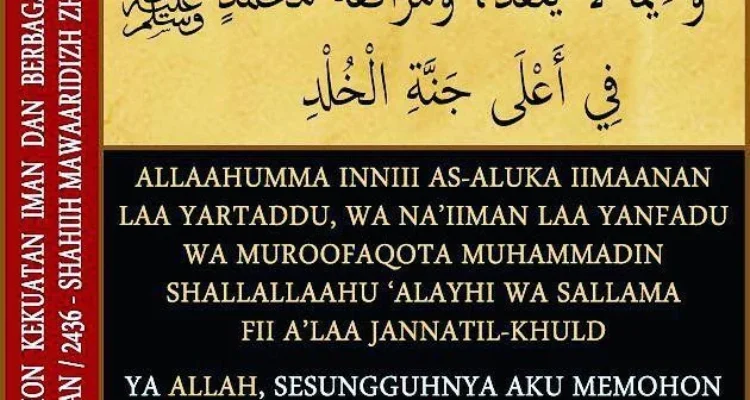 لَا يَنْفَدُ، وَمُرَافَقَةَ مُحَمَّدٍ ﷺ
فِي أَعْلَى جَنَّةِ الْخُلْدِ
ALLAAHUMMA INNIII AS-ALUKA IIMAANAN
LAA YARTADDU, WA NA’IIMAN LAA YANFADU
WA MUROOFAQOTA MUHAMMADIN
SHALLALLAAHU ‘ALAYHI WA SALLAMA
FII A’LAA JANNATIL-KHULD
YA ALLAH, SESUNGGUHNYA AKU MEMOHON
KEKUATAN IMAN DAN
/ 2436 - SHAHIIH MAWAARIDIZH